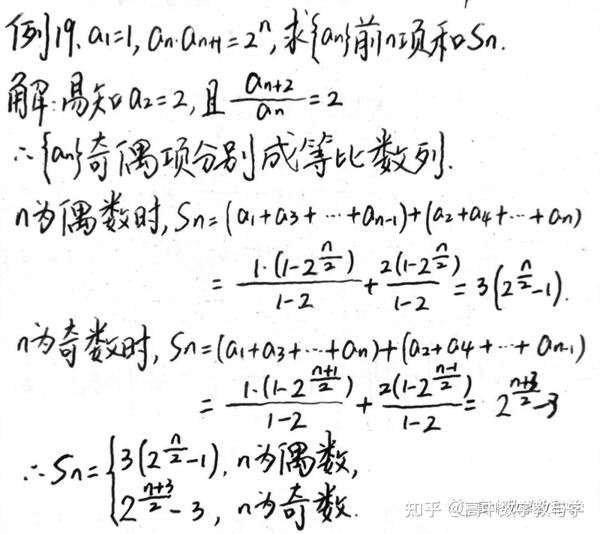 例19. a₁=1, aₙ·aₙ₊₁=2ⁿ, 求{aₙ}前n项和Sₙ.
解:易知a₂=2,且 aₙ₊₂/aₙ=2
∴{aₙ}奇偶项分别成等比数列.
n为偶数时, Sₙ=(a₁+a₃+⋯+aₙ₋₁)+(a₂+a₄+⋯+aₙ)
= 1·(1-2^(n/2))/(1-2) + 2(1-2^(n/2))/(1-2) = 3(2^(n/2)-1).
n为奇数时, Sₙ=(a₁+a₃+⋯+aₙ)+(a₂+a₄+⋯+aₙ₋₁)
= 1·(1-2^((n+1)/2))/(1-2) + 2(1-2^((n-1)/2))/(1-2) = 2^((n+3)/2)-3
∴Sₙ={3(2^(n/2)-1), n为偶数,
2^((n+3)/2)-3, n为奇数.
知乎 @高中数学教与学